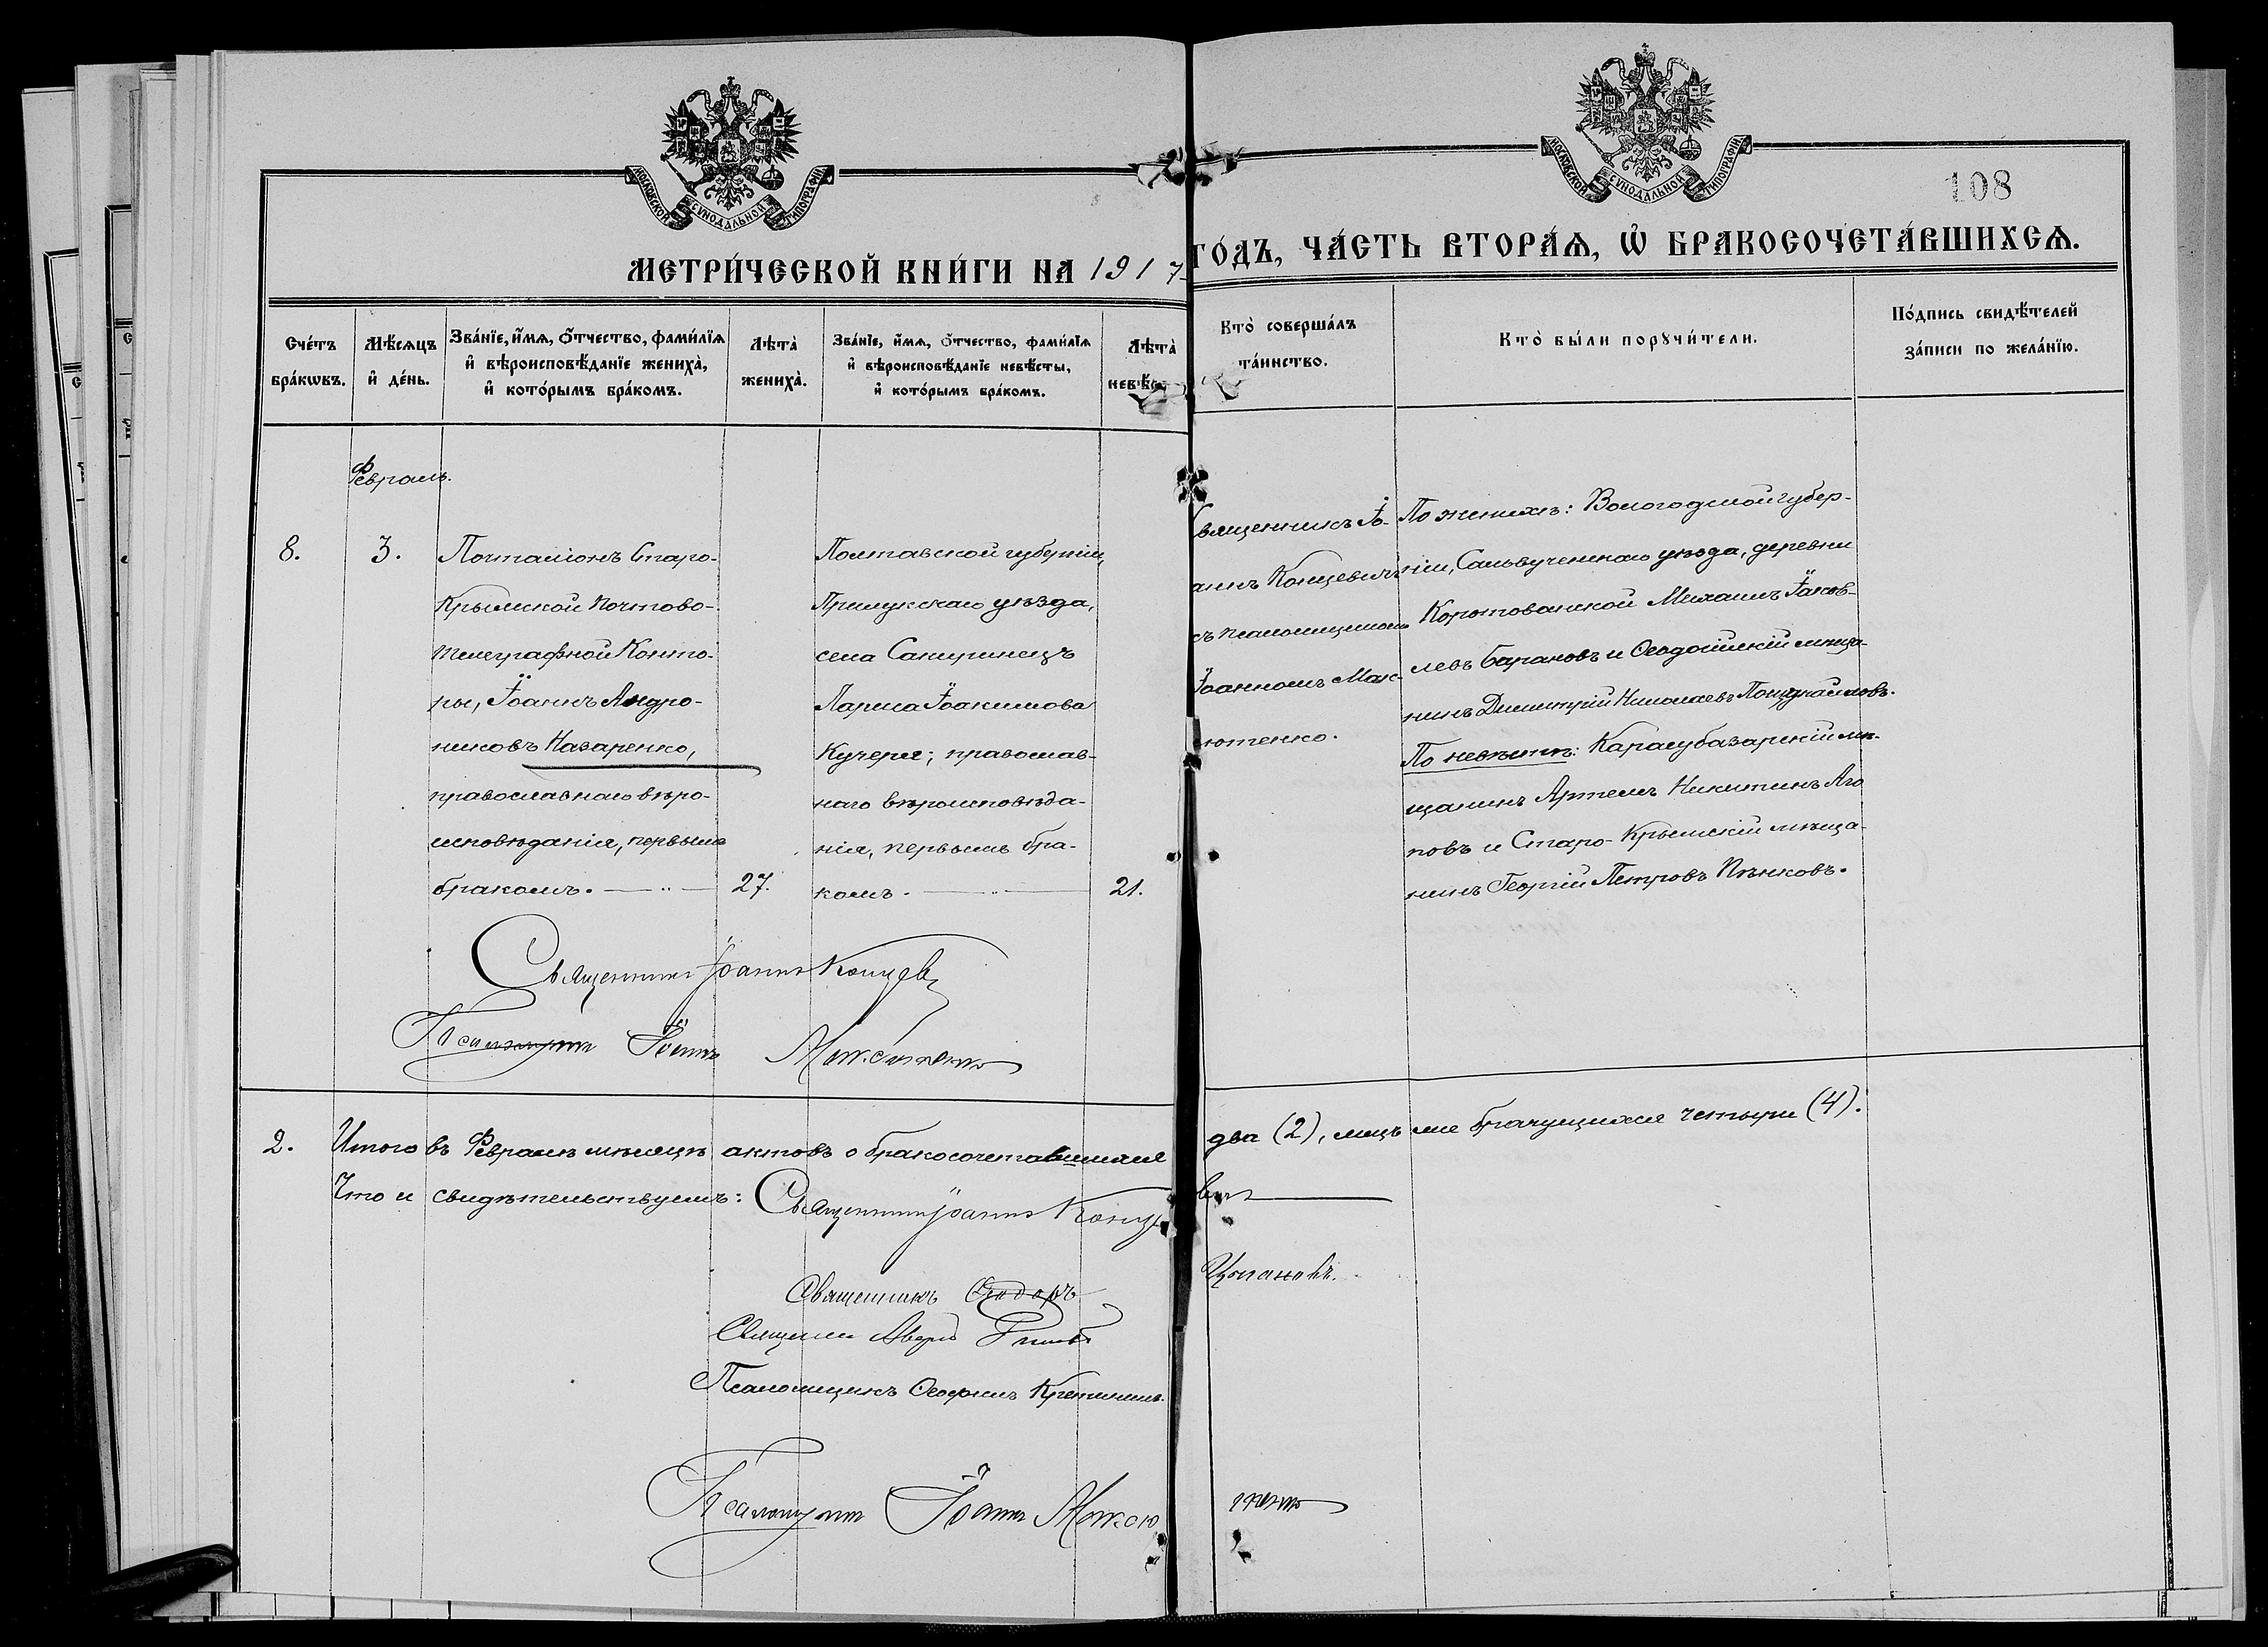 МОСКОВСКОЙ СѴНОДАЛЬНОЙ ТИПОГРАФІИ
МОСКОВСКОЙ СѴНОДАЛЬНОЙ ТИПОГРАФІИ
108
МЕТРИ́ЧЕСКОЙ КНИ́ГИ НА 1917 ГО́ДЪ, ЧА́СТЬ ВТОРА́Ѧ, Ѡ҆ БРАКОСОЧЕТА́ВШИХСѦ.
Сче́тъ
бра́кѡвъ.
Мѣ́сѧцъ
и҆ де́нь.
Зва́нїе, и҆́мѧ, ѻ҆́тчество, фами́лїѧ
и҆ вѣроисповѣ́данїе жениха̀,
и҆ кото́рымъ бра́комъ.
Лѣта̀
жениха̀.
Зва́нїе, и҆́мѧ, ѻ҆́тчество, фами́лїѧ
и҆ вѣроисповѣ́данїе невѣ́сты,
и҆ кото́рымъ бра́комъ.
Лѣта̀
невѣ́с
Кто̀ соверша́лъ
та́инство.
Кто̀ бы́ли порꙋчи́тели.
По́дпись свидѣ́телей
за́писи по жела́нїю.
Февраль.
8.
3.
Почталіонъ Старо-
Крымской Почтово-
телеграфной Конто-
ры, Іоаннъ Андро-
никовъ Назаренко,
православнаго вѣро-
исповѣданія, первымъ
бракомъ.
27.
Полтавской губерніи,
Прилукскаго уѣзда,
села Сакиринецъ
Лариса Іоакимова
Кучеря; православ-
наго вѣроисповѣда-
нія, первымъ бра-
комъ.
21.
Священникъ Іо-
аннъ Концевичъ
съ псаломщикомъ
Іоанномъ Мак-
сютенко.
По женихѣ: Вологодской губер-
ніи, Сольвучегинскаго уѣзда, деревни
Коротованской Михаилъ Іаков-
левъ Барановъ и Ѳеодосійскій мѣща-
нинъ Димитрій Николаевъ
По невѣстѣ: Карасубазарскій мѣ-
щанинъ Артемъ Никитинъ Аго
повъ и Старо-Крымскій мѣща-
нинъ Георгій Петровъ Пѣнковъ.
Священникъ Іоаннъ Концев
Псаломщикъ Іоаннъ Максютенко
2. Итого въ Февралѣ мѣсяцѣ актовъ о бракосочетавшихся два (2), лицъ же брачущихся четыре (4).
Что и свидѣтельствуемъ: Священникъ Іоаннъ Концевичъ
Священникъ Ѳеодоръ
Священникъ
Псаломщикъ
Псаломщикъ Іоаннъ Максютенко